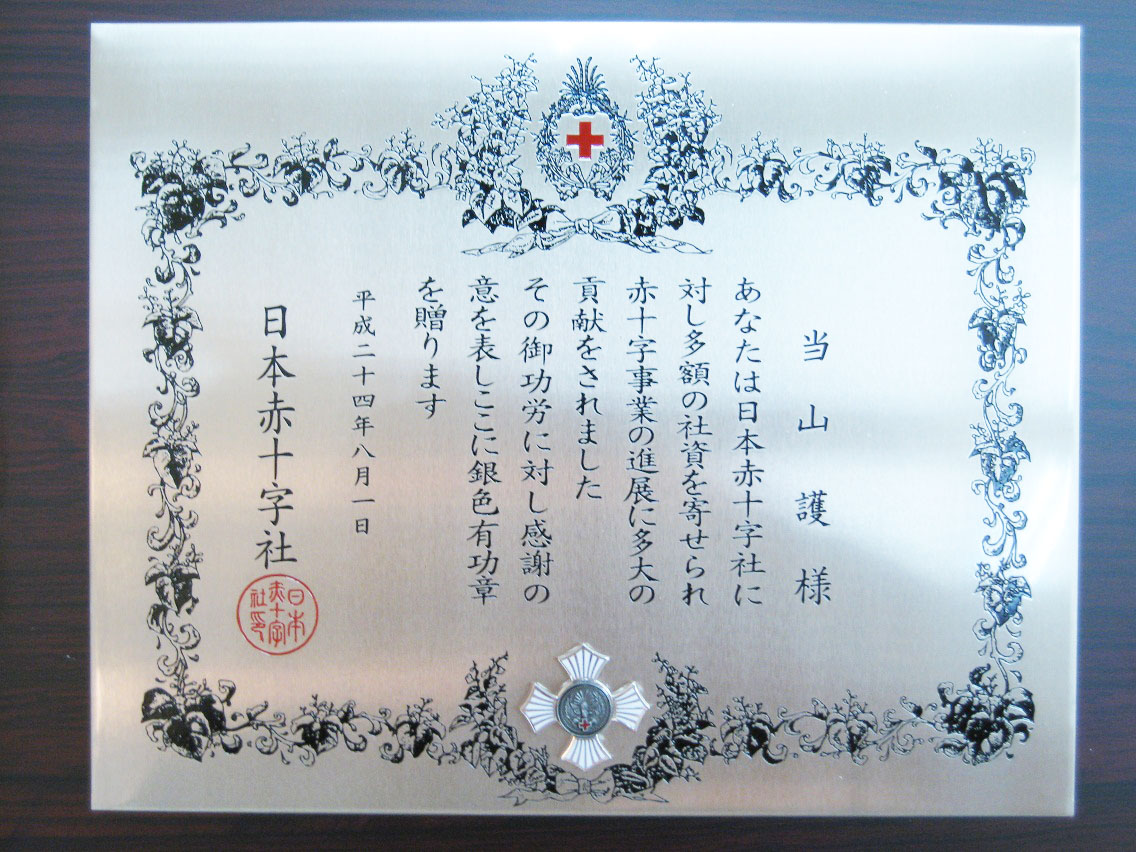 当山護様
あなたは日本赤十字社に
対し多額の社資を寄せられ
赤十字事業の進展に多大の
貢献をされました
その御功労に対し感謝の
意を表しここに銀色有功章
を贈ります
平成二十四年八月一日
日本赤十字社
日本
赤十字
社印